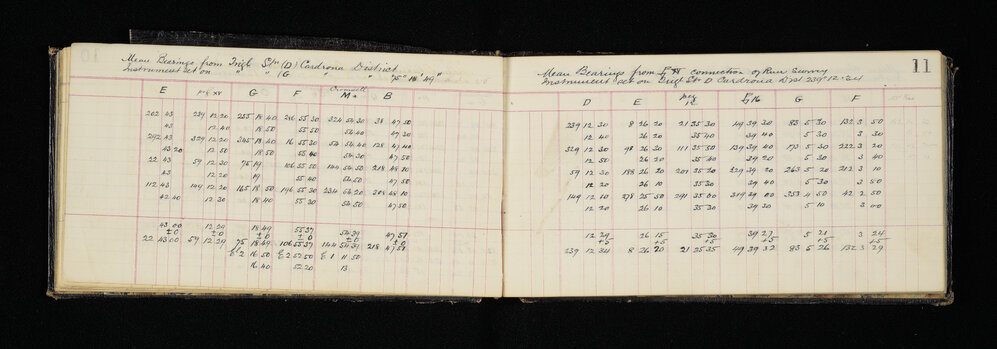 Mean Bearings from Trigl Stn (D) Cardrona District
Instrument set on " " (G " " 75° 18' 49"
Cromwell
E G F M B
202 43 239 12 20 255 18 40 286 55 30 324 54 30 38 47 50
43 12 40 18 50 55 50 54 40 47 30
292 43 329 12 20 345 18 40 16 55 30 54 54 40 128 47 40
43 20 12 50 18 50 55 40 54 30 47 50
22 43 59 12 30 75 19 106 55 50 144 54 50 218 48 10
43 12 20 19 55 40 54 50 47 50
112 43 149 12 20 165 18 50 196 55 30 234 54 20 308 48 10
42 40 12 30 18 40 55 30 54 50 47 50
43 00 12 29 18 49 55 37 54 39 47 51
±0 ±0 ±0 ±0 ±0 ±0
22 43 00 59 12 29 75 18 49 106 55 37 144 54 39 218 47 51
2 16 50 2 52 50 1 11 50
16 40 52 20 13
11
Mean Bearings from connection of Run Survey
Instrument set on Trigl Stn D Cardrona Dist 239° 12' 34
D E G F
239 12 30 8 26 20 21 35 30 49 39 30 83 5 30 132 3 50
12 40 26 20 35 40 39 40 5 30 3 30
329 12 30 98 26 30 111 35 50 139 39 40 173 5 30 222 3 20
12 50 26 20 35 40 39 20 5 30 3 40
59 12 30 188 26 20 201 35 20 229 39 20 263 5 20 312 3 10
12 20 26 10 35 30 39 40 5 30 3 50
149 12 10 278 25 50 291 35 00 319 39 00 353 4 50 42 2 50
12 20 26 10 35 30 39 30 5 10 3 00
12 29 26 15 35 30 39 27 5 21 3 24
+5 +5 +5 +5 +5 +5
239 12 34 8 26 20 21 35 35 49 39 32 83 5 26 132 3 29